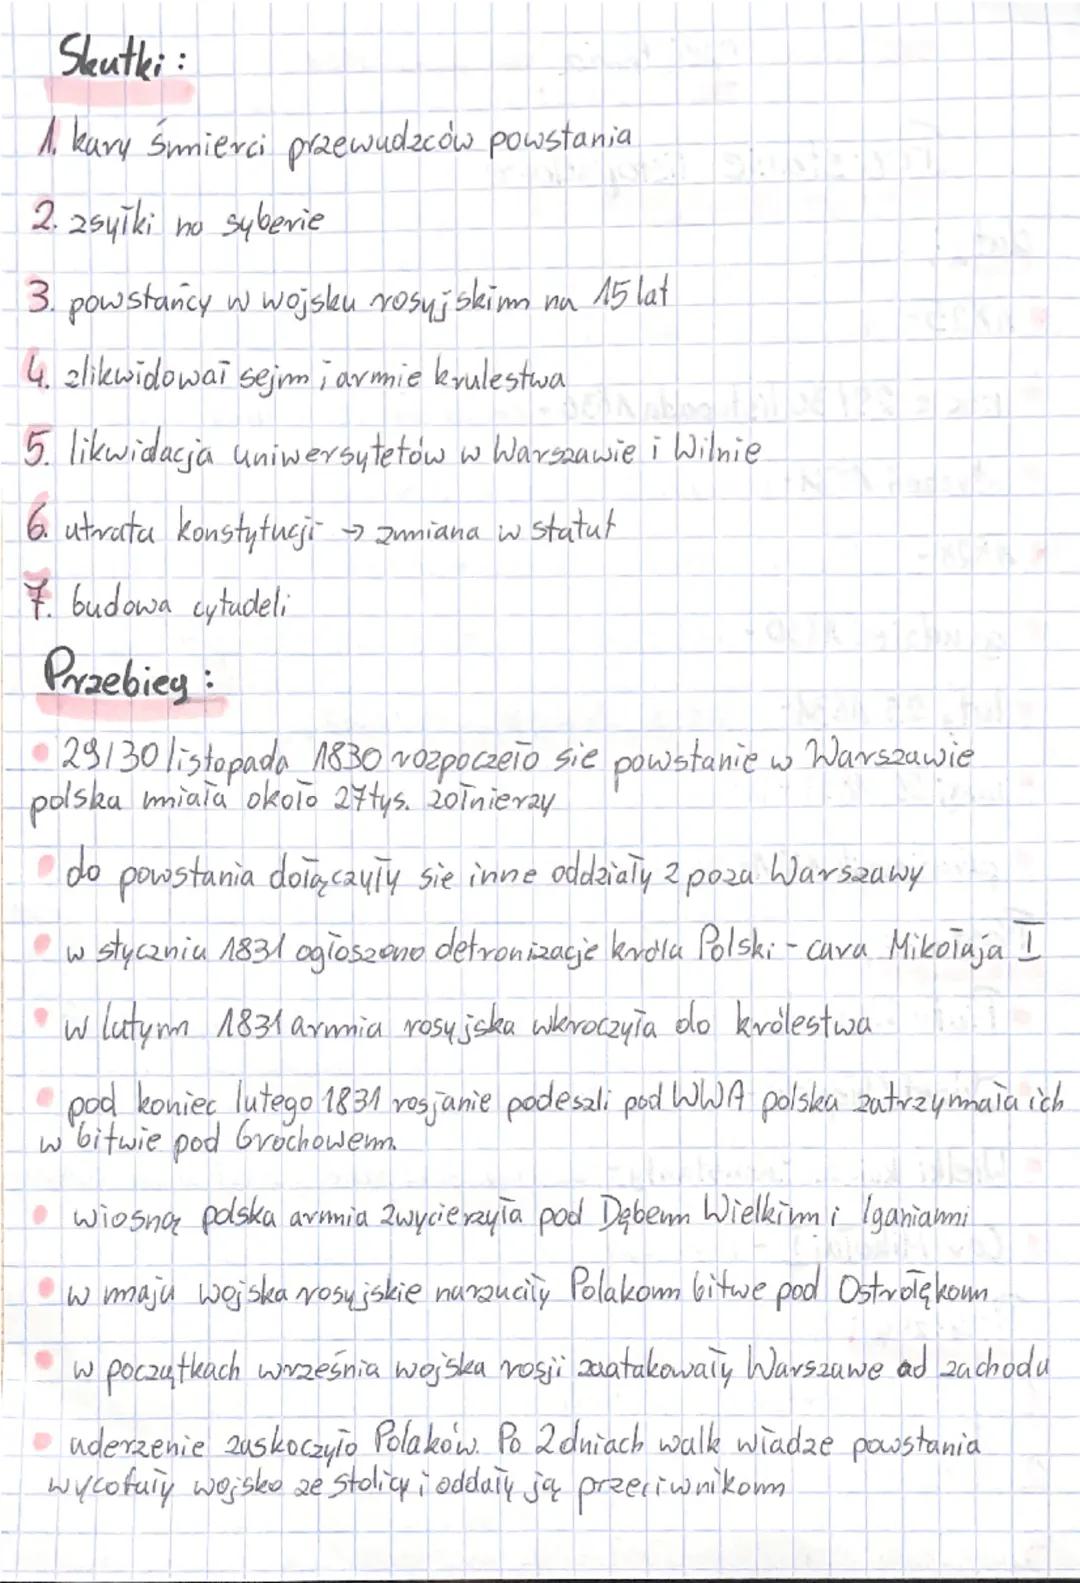 Skutki:
1. kary śmierci przewudzców powstania
2. zsyłki na syberie
3. powstańcy w wojsku rosyjskim na 15 lat
4. zlikwidował sejm i armie krulestwa
5. likwidacja uniwersytetów w Warszawie i Wilnie
6. utrata konstytucji → zmiana w statut
7. budowa cytadeli
Przebieg:
• 29/30 listopada 1830 rozpoczeło sie powstanie w Warszawie
polska miała około 27tys. żołnierzy
• do powstania dołączyły sie inne oddziały z poza Warszawy
• w styczniu 1831 ogłoszono detronizacje króla Polski - cara Mikołaja I
• w lutym 1831 armia rosyjska wkroczyła do królestwa
• pod koniec lutego 1831 rosjanie podeszli pod WWA polska zatrzymała ich
w bitwie pod Grochowem.
• wiosną polska armia zwycierzyła pod Dębem Wielkim i Iganiami
• w maju wojska rosyjskie narzuciły Polakom bitwe pod Ostrołękom
• w początkach września wojska rosji zaatakowały Warszawe od zachodu
• uderzenie zaskoczyło Polaków. Po 2 dniach walk władze powstania
wycofały wojsko ze stolicy i oddały ją przeciwnikom